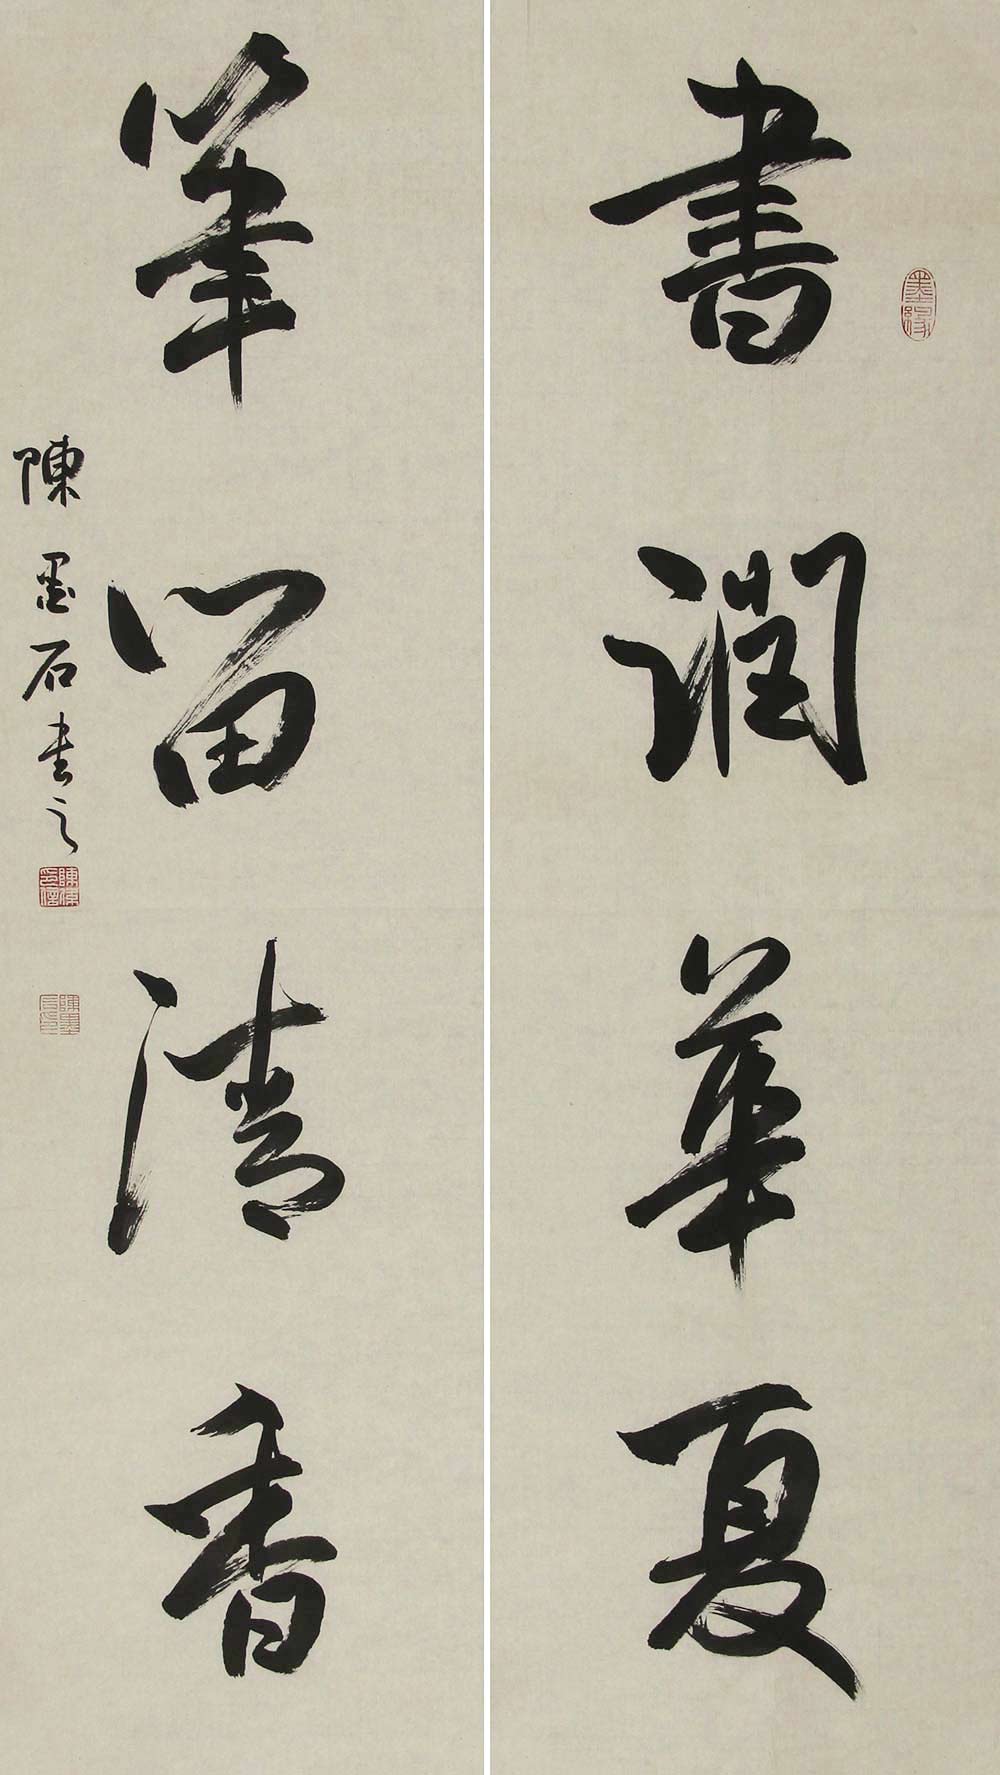 墨緣
書潤華夏
筆留清香
陳墨石書之